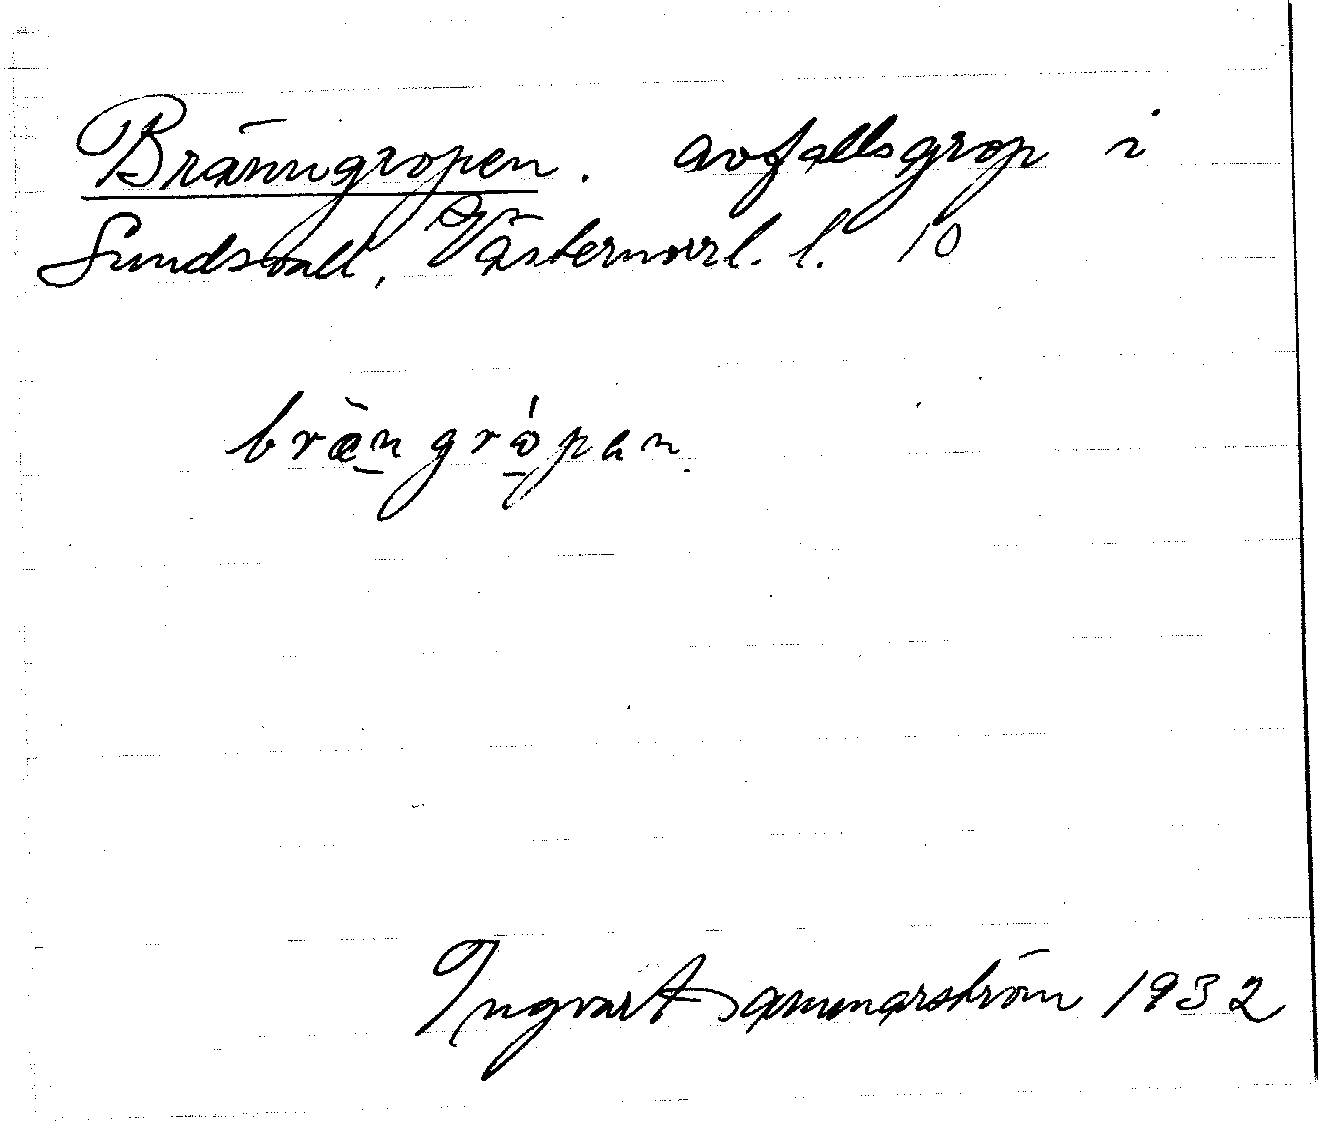 Bränngropen. avfallsgrop i
Sundsvall, Västernorrl. l. 10
bræ̀n gró̱pan
Ingvar Hammarström 1932